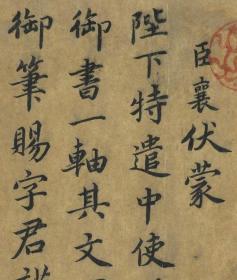 臣襄伏蒙
陛下特遣中使
御書一軸其文
御筆賜字君謨